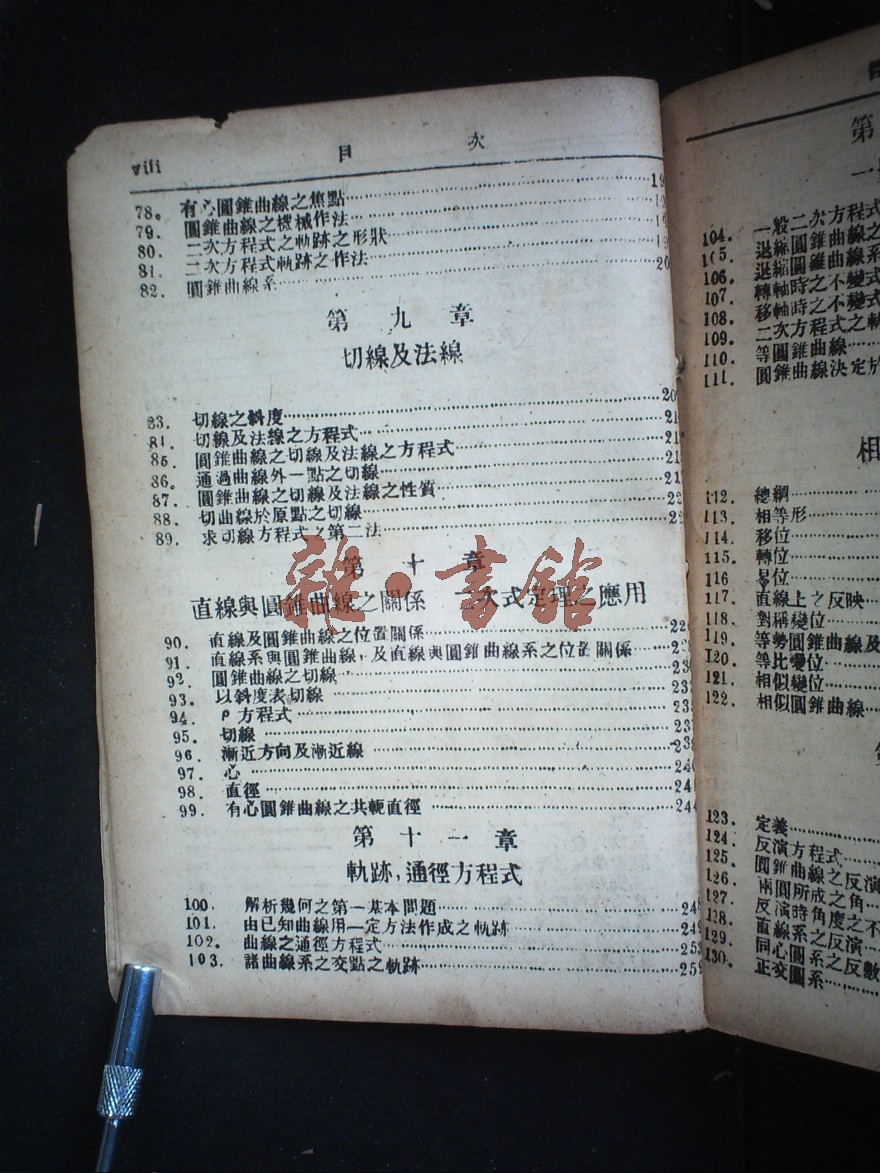 viii 目 次
78. 有心圓錐曲線之焦點
79. 圓錐曲線之機械作法
80. 二次方程式之軌跡之形狀
81. 二次方程式軌跡之作法
82. 圓錐曲線系
第 九 章
切線及法線
83. 切線之斜度
84. 切線及法線之方程式
85. 圓錐曲線之切線及法線之方程式
86. 通過曲線外一點之切線
87. 圓錐曲線之切線及法線之性質
88. 切曲線於原點之切線
89. 求切線方程式之第二法
第 十 章
直線與圓錐曲線之關係 二次式定理之應用
90. 直線及圓錐曲線之位置關係
91. 直線系與圓錐曲線,及直線與圓錐曲線系之位置關係
92. 圓錐曲線之切線
93. 以斜度表切線
94. ρ方程式
95. 切線
96. 漸近方向及漸近線
97. 心
98. 直徑
99. 有心圓錐曲線之共軛直徑
第 十 一 章
軌跡,通徑方程式
100. 解析幾何之第一基本問題
101. 由已知曲線用一定方法作成之軌跡
102. 曲線之通徑方程式 253
103. 諸曲線系之交點之軌跡 259
雜·書館
第
104. 一般二次方程式
105. 退縮圓錐曲線之
106. 退縮圓錐曲線系
107. 轉軸時之不變式
108. 移軸時之不變式
109. 二次方程式之軌
110. 等圓錐曲線
111. 圓錐曲線決定於
相
112. 總綱
113. 相等形
114. 移位
115. 轉位
116 易位
117. 直線上之反映
118. 對稱變位
119. 等勢圓錐曲線及
120. 等比變位
121. 相似變位
122. 相似圓錐曲線
123. 定義
124. 反演方程式
125. 圓錐曲線之反演
126. 兩圓所成之角
127. 反演時角度之不
128. 直線系之反演
129. 同心圓系之反數
130. 正交圓系